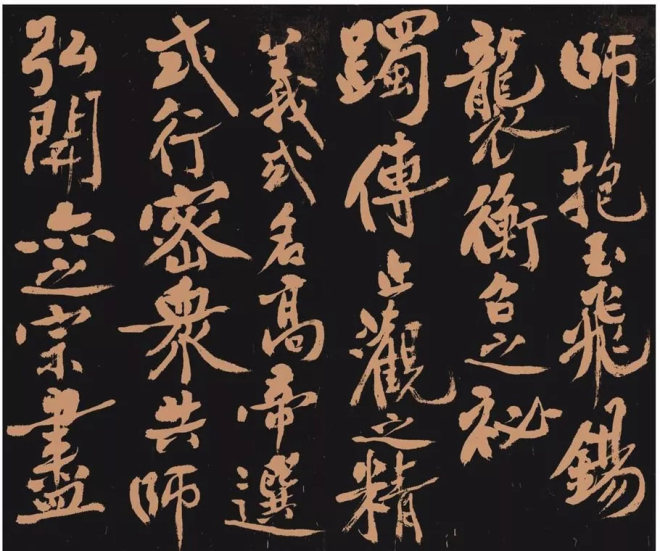 師抱玉飛錫
襲衡台之祕
躅傳止觀之精
義或名高帝選
或行密眾共師
弘開示之宗盡